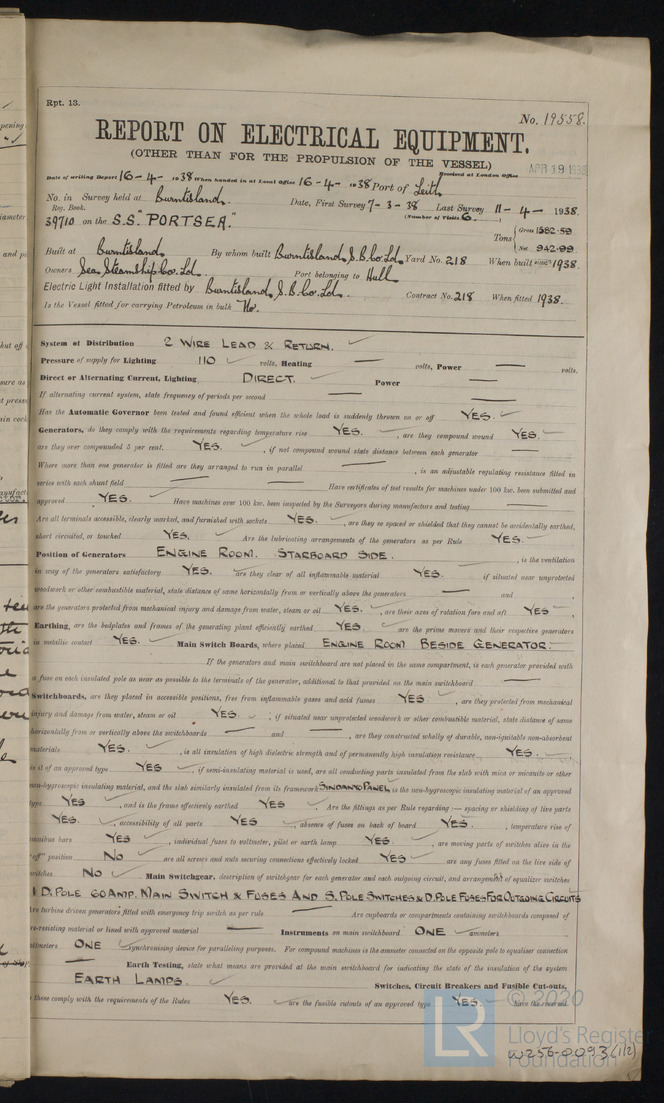 Rpt. 13.
No. 19558.
REPORT ON ELECTRICAL EQUIPMENT.
(OTHER THAN FOR THE PROPULSION OF THE VESSEL)
APR 19 1938
Date of writing Report 16-4-1938 When handed in at Local Office 16-4-1938 Port of Leith Received at London Office
No. in Survey held at Burntisland. Date, First Survey 7-3-38 Last Survey 11-4-1938.
Reg. Book. (Number of Visits 6.)
39710 on the S.S. "PORTSEA." Tons { Gross 1582.59
Net 942.99
Built at Burntisland By whom built Burntisland S.B. Co. Ld. Yard No. 218 When built 1938.
Owners Sea Steamship Co. Ld. Port belonging to Hull
Electric Light Installation fitted by Burntisland S.B. Co. Ld. Contract No. 218 When fitted 1938.
Is the Vessel fitted for carrying Petroleum in bulk No.
System of Distribution 2 WIRE LEAD & RETURN. ✓
Pressure of supply for Lighting 110 ✓ volts, Heating — volts, Power — volts.
Direct or Alternating Current, Lighting DIRECT. ✓ Power —
If alternating current system, state frequency of periods per second —
Has the Automatic Governor been tested and found efficient when the whole load is suddenly thrown on or off YES. ✓
Generators, do they comply with the requirements regarding temperature rise YES. ✓, are they compound wound YES. ✓
are they over compounded 5 per cent. YES. ✓, if not compound wound state distance between each generator —
Where more than one generator is fitted are they arranged to run in parallel —, is an adjustable regulating resistance fitted in
series with each shunt field — Have certificates of test results for machines under 100 kw. been submitted and
approved YES. ✓ Have machines over 100 kw. been inspected by the Surveyors during manufacture and testing —
Are all terminals accessible, clearly marked, and furnished with sockets YES. ✓, are they so spaced or shielded that they cannot be accidentally earthed,
short circuited, or touched YES. ✓ Are the lubricating arrangements of the generators as per Rule YES. ✓
Position of Generators ENGINE ROOM. STARBOARD SIDE. ✓, is the ventilation
in way of the generators satisfactory YES. ✓ are they clear of all inflammable material YES. ✓ if situated near unprotected
woodwork or other combustible material, state distance of same horizontally from or vertically above the generators — and —,
are the generators protected from mechanical injury and damage from water, steam or oil YES. ✓, are their axes of rotation fore and aft YES ✓,
Earthing, are the bedplates and frames of the generating plant efficiently earthed YES. ✓ are the prime movers and their respective generators
in metallic contact YES. ✓ Main Switch Boards, where placed ENGINE ROOM BESIDE GENERATOR. ✓
If the generators and main switchboard are not placed in the same compartment, is each generator provided with
a fuse on each insulated pole as near as possible to the terminals of the generator, additional to that provided on the main switchboard —
Switchboards, are they placed in accessible positions, free from inflammable gases and acid fumes YES ✓, are they protected from mechanical
injury and damage from water, steam or oil YES. ✓, if situated near unprotected woodwork or other combustible material, state distance of same
horizontally from or vertically above the switchboards — and —, are they constructed wholly of durable, non-ignitable non-absorbent
materials YES. ✓, is all insulation of high dielectric strength and of permanently high insulation resistance YES. ✓
is it of an approved type YES ✓, if semi-insulating material is used, are all conducting parts insulated from the slab with mica or micanite or other
non-hygroscopic insulating material, and the slab similarly insulated from its framework SINDANYO PANEL, is the non-hygroscopic insulating material of an approved
type YES ✓, and is the frame effectively earthed YES ✓. Are the fittings as per Rule regarding:— spacing or shielding of live parts
YES. ✓, accessibility of all parts YES ✓, absence of fuses on back of board YES. ✓, temperature rise of
omnibus bars YES ✓, individual fuses to voltmeter, pilot or earth lamp YES. ✓, are moving parts of switches alive in the
"off" position NO ✓ are all screws and nuts securing connections effectively locked YES ✓ are any fuses fitted on the live side of
switches NO ✓ Main Switchgear, description of switchgear for each generator and each outgoing circuit, and arrangement of equalizer switches
1 D. POLE 60 AMP. MAIN SWITCH & FUSES AND S. POLE SWITCHES & D. POLE FUSES FOR OUTGOING CIRCUITS
Are turbine driven generators fitted with emergency trip switch as per rule — Are cupboards or compartments containing switchboards composed of
re-resisting material or lined with approved material — Instruments on main switchboard ONE ✓ ammeters
voltmeters ONE ✓ synchronising device for paralleling purposes. For compound machines is the ammeter connected on the opposite pole to equaliser connection
— Earth Testing, state what means are provided at the main switchboard for indicating the state of the insulation of the system
EARTH LAMPS. ✓ Switches, Circuit Breakers and Fusible Cut-outs,
these comply with the requirements of the Rules YES. ✓ are the fusible cutouts of an approved type YES. ✓ have the reversed
© 2020
LR
Lloyd's Register
Foundation
W256-0093 (1/2)